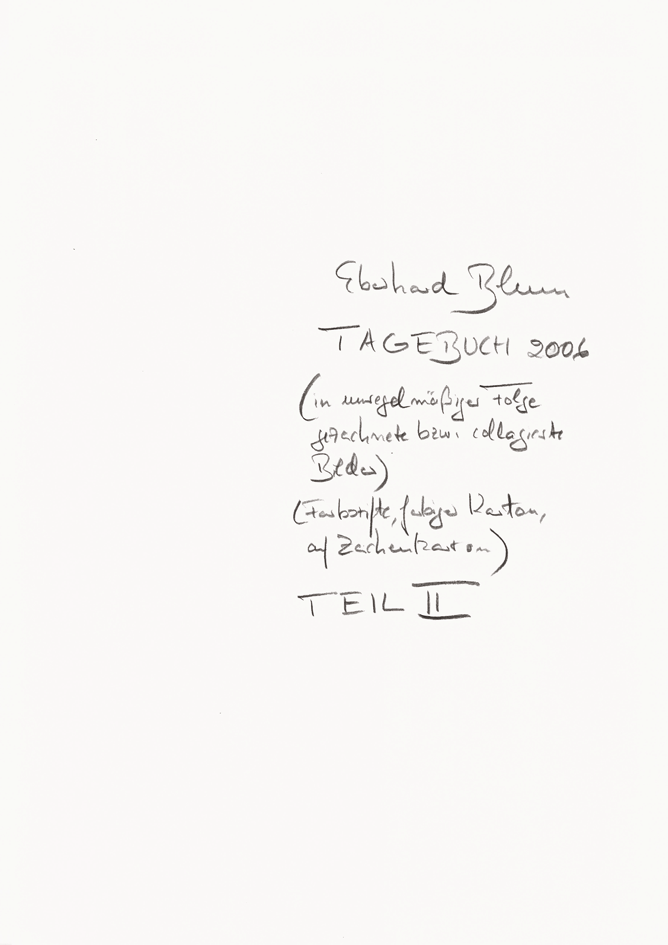 Eberhard Blum
TAGEBUCH 2006
(in unregelmäßiger Folge
gezeichnete bzw. collagierte
Bilder)
(Farbstifte, farbiger Karton,
auf Zeichenkarton)
TEIL II